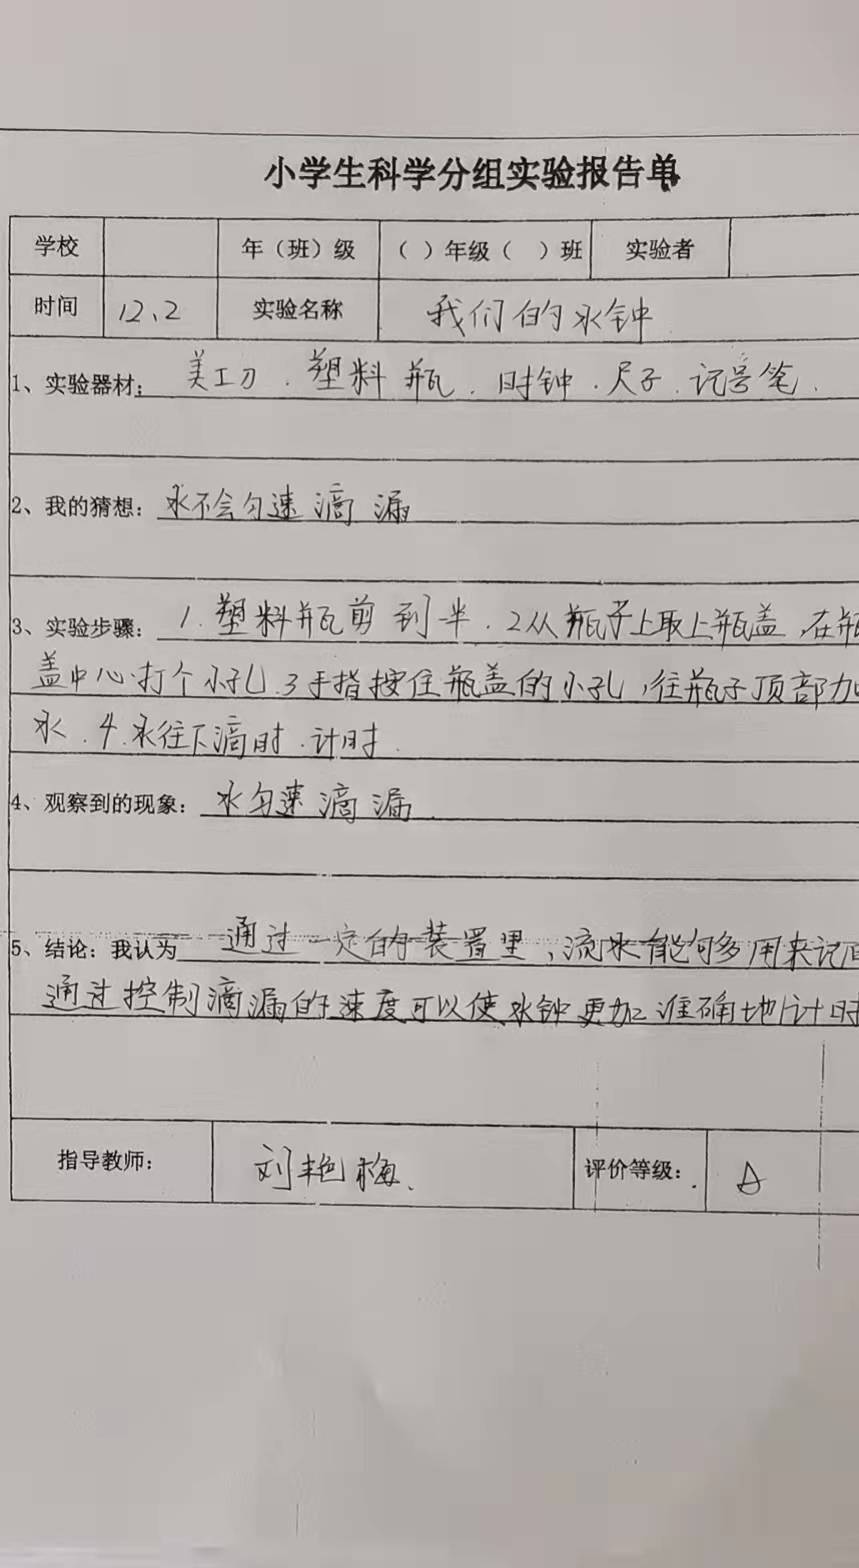 小学生科学分组实验报告单
学校 年（班）级 （ ）年级（ ）班 实验者
时间 12、2 实验名称 我们的水钟
1、实验器材：美工刀．塑料瓶．时钟．尺子．记号笔．
2、我的猜想：水不会匀速滴漏
3、实验步骤：1.塑料瓶剪到半．2从瓶子上取上瓶盖，在瓶
盖中心打个小孔.3手指按住瓶盖的小孔，往瓶子顶部加
水．4.水往下滴时．计时．
4、观察到的现象：水匀速滴漏．
5、结论：我认为 通过一定的装置里，流水能够用来记
通过控制滴漏的速度可以使水钟更加准确地计时
指导教师： 刘艳梅． 评价等级： A